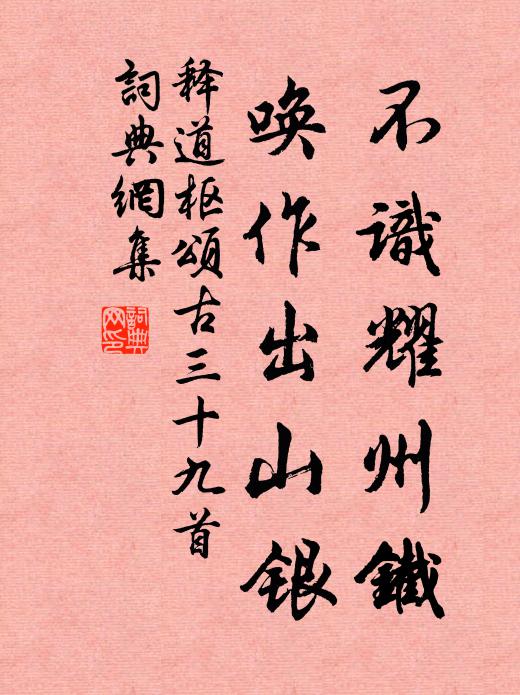 不識耀州鐵
喚作出山银
释道枢頌古三十九首
詞典網集
詞典
网印